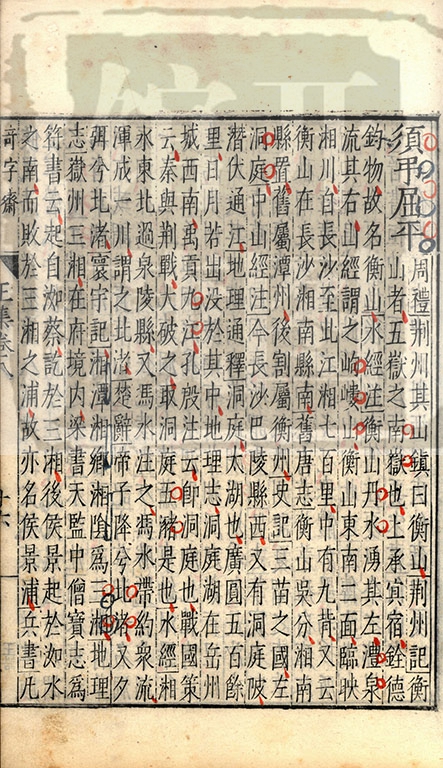 須弔屈平
周禮荆州其山鎮曰衡山荆州記衡
山者五嶽之南嶽也上承宾宿銓德
鈞物故名衡山水經注衡山丹水湧其左澧泉
流其右山經謂之岣嶁山衡山東南二面臨映
湘川自長沙至此江湘七百里中有九背又云
衡山在長沙湘南縣南舊唐志衡山吳分湘南
縣置舊屬潭州後割屬衡州史記三苗之國左
洞庭中山經注今長沙巴陵縣西又有洞庭陂
潛伏通江地理通釋洞庭太湖也廣圓五百餘
里日月若出没於其中地理志洞庭湖在岳州
城西南禹貢九江孔殷注云卽洞庭也戰國策
云秦與荆戰大破之取洞庭五渚是也水經湘
水東北過泉陵縣又馮水注之馮水帶約衆流
渾成一川謂之北渚楚辭帝子降兮北渚又夕
弭兮北渚寰宇記湘潭湘鄉湘陰爲三湘地理
志嶽州三湘在府境内梁書天監中僧寶志爲
符書云起自汝蔡訖於三湘後侯景起於汝水
之南而敗於三湘之浦故亦名侯景浦兵書凡
奇字齋
王集卷八
十六